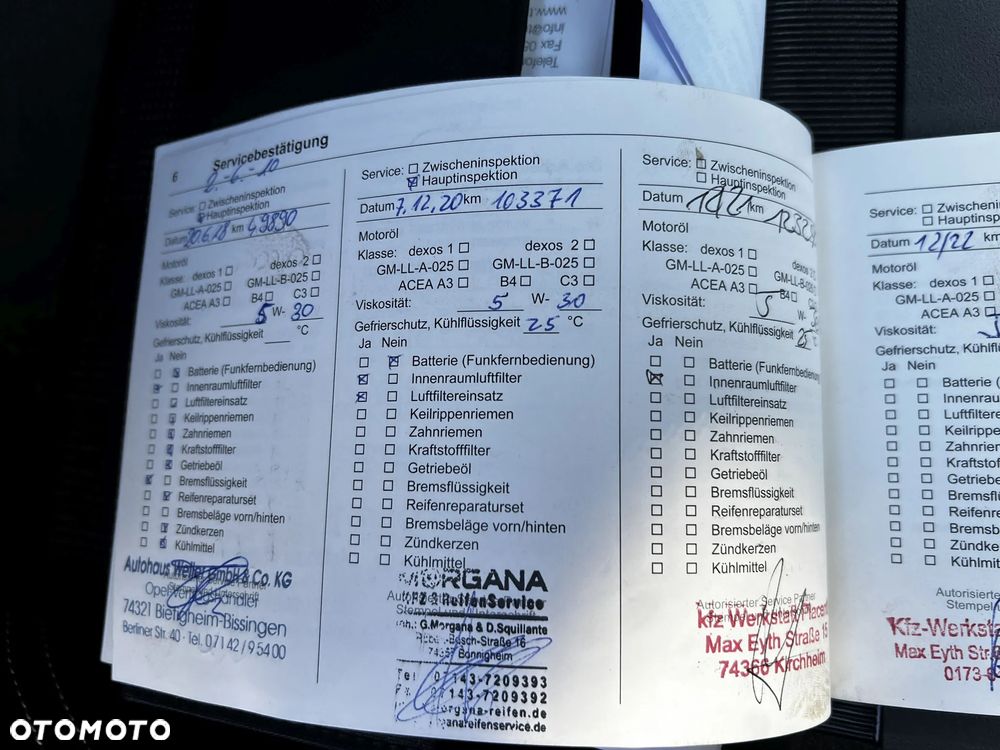 6 Servicebestätigung
Service: Zwischeninspektion
Hauptinspektion
Datum 20.6.18 km 49890
Motoröl
Klasse: dexos 1 dexos 2
GM-LL-A-025 GM-LL-B-025
ACEA A3 B4 C3
Viskosität: 5 W- 30
Gefrierschutz, Kühlflüssigkeit °C
Ja Nein
Batterie (Funkfernbedienung)
Innenraumluftfilter
Luftfiltereinsatz
Keilrippenriemen
Zahnriemen
Kraftstofffilter
Getriebeöl
Bremsflüssigkeit
Reifenreparaturset
Bremsbeläge vorn/hinten
Zündkerzen
Kühlmittel
Autohaus GmbH & Co. KG
74321 Bietigheim-Bissingen
Berliner Str. 40 · Tel. 07142/95400
Service: Zwischeninspektion
Hauptinspektion
Datum 7.12.20 km 103371
Motoröl
Klasse: dexos 1 dexos 2
GM-LL-A-025 GM-LL-B-025
ACEA A3 B4 C3
Viskosität: 5 W- 30
Gefrierschutz, Kühlflüssigkeit 25 °C
Ja Nein
Batterie (Funkfernbedienung)
Innenraumluftfilter
Luftfiltereinsatz
Keilrippenriemen
Zahnriemen
Kraftstofffilter
Getriebeöl
Bremsflüssigkeit
Reifenreparaturset
Bremsbeläge vorn/hinten
Zündkerzen
Kühlmittel
MORGANA
KFZ & ReifenService
Inh.: G.Morgana & D.Squillante
Robert-Bosch-Straße 16
74357 Bönnigheim
Tel 07143-7209393
Fax 07143-7209392
morgana-reifen.de
morganareifenservice.de
Service: Zwischeninspektion
Hauptinspektion
Datum km
Motoröl
Klasse: dexos 1 dexos 2
GM-LL-A-025 GM-LL-B-025
ACEA A3 B4
Viskosität: 5 W-
Gefrierschutz, Kühlflüssigkeit 25
Ja Nein
Batterie (Funkfernbedienung
Innenraumluftfilter
Luftfiltereinsatz
Keilrippenriemen
Zahnriemen
Kraftstofffilter
Getriebeöl
Bremsflüssigkeit
Reifenreparaturset
Bremsbeläge vorn/hinten
Zündkerzen
Kühlmittel
Autorisierter Service Partner
kfz Werkstatt
Max Eyth Straße 15
74366 Kirchheim
Service: Zwischenin
Hauptinsp
Datum 12/22 km
Motoröl
Klasse: dexos 1
GM-LL-A-025
ACEA A3
Viskosität:
Gefrierschutz, Kühlfl
Ja Nein
Batterie (
Innenraum
Luftfilter
Keilrippe
Zahnrieme
Kraftstof
Getriebeö
Bremsflü
Reifenre
Bremsb
Zündke
Kühlmit
Autorisierte
Stempel
Kfz-Werksta
Max Eyth Str.
0173-
OTOMOTO